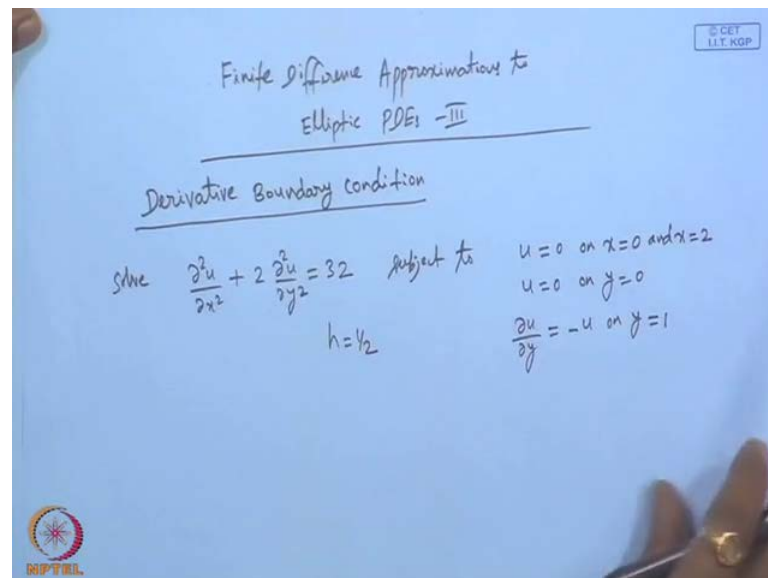 © CET
I.I.T. KGP
Finite Difference Approximations to
Elliptic PDEs -III
Derivative Boundary Condition
Solve ∂²u/∂x² + 2 ∂²u/∂y² = 32 subject to u=0 on x=0 and x=2
u=0 on y=0
h=1/2
∂u/∂y = -u on y=1
NPTEL